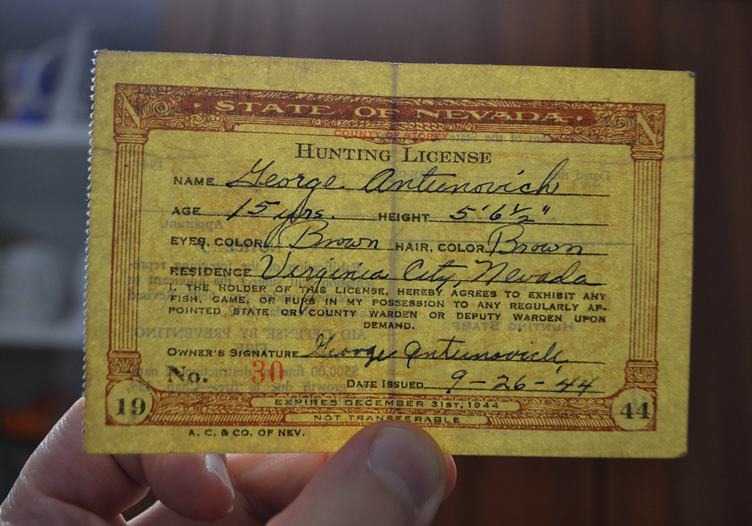 N STATE OF NEVADA. N
COUNTY OF STOREY
HUNTING LICENSE
NAME George Antunovich
AGE 15 yrs. HEIGHT 5'6½"
EYES, COLOR Brown HAIR, COLOR Brown
RESIDENCE Virginia City, Nevada
I, THE HOLDER OF THIS LICENSE, HEREBY AGREES TO EXHIBIT ANY
FISH, GAME, OR FURS IN MY POSSESSION TO ANY REGULARLY AP-
POINTED STATE OR COUNTY WARDEN OR DEPUTY WARDEN UPON
DEMAND.
OWNER'S SIGNATURE George Antunovich
No. 30
DATE ISSUED 9-26-44
19 EXPIRES DECEMBER 31ST, 1944 44
NOT TRANSFERABLE
A. C. & CO. OF NEV.